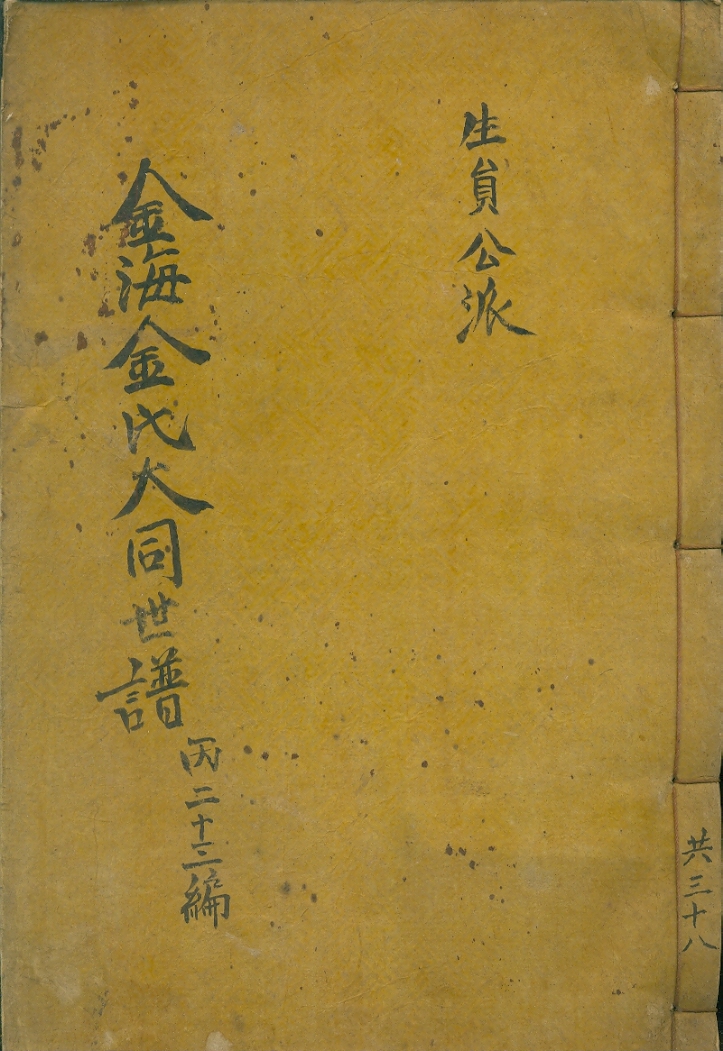 共三十八
生員公派
金海金氏大同世譜
丙二十三編